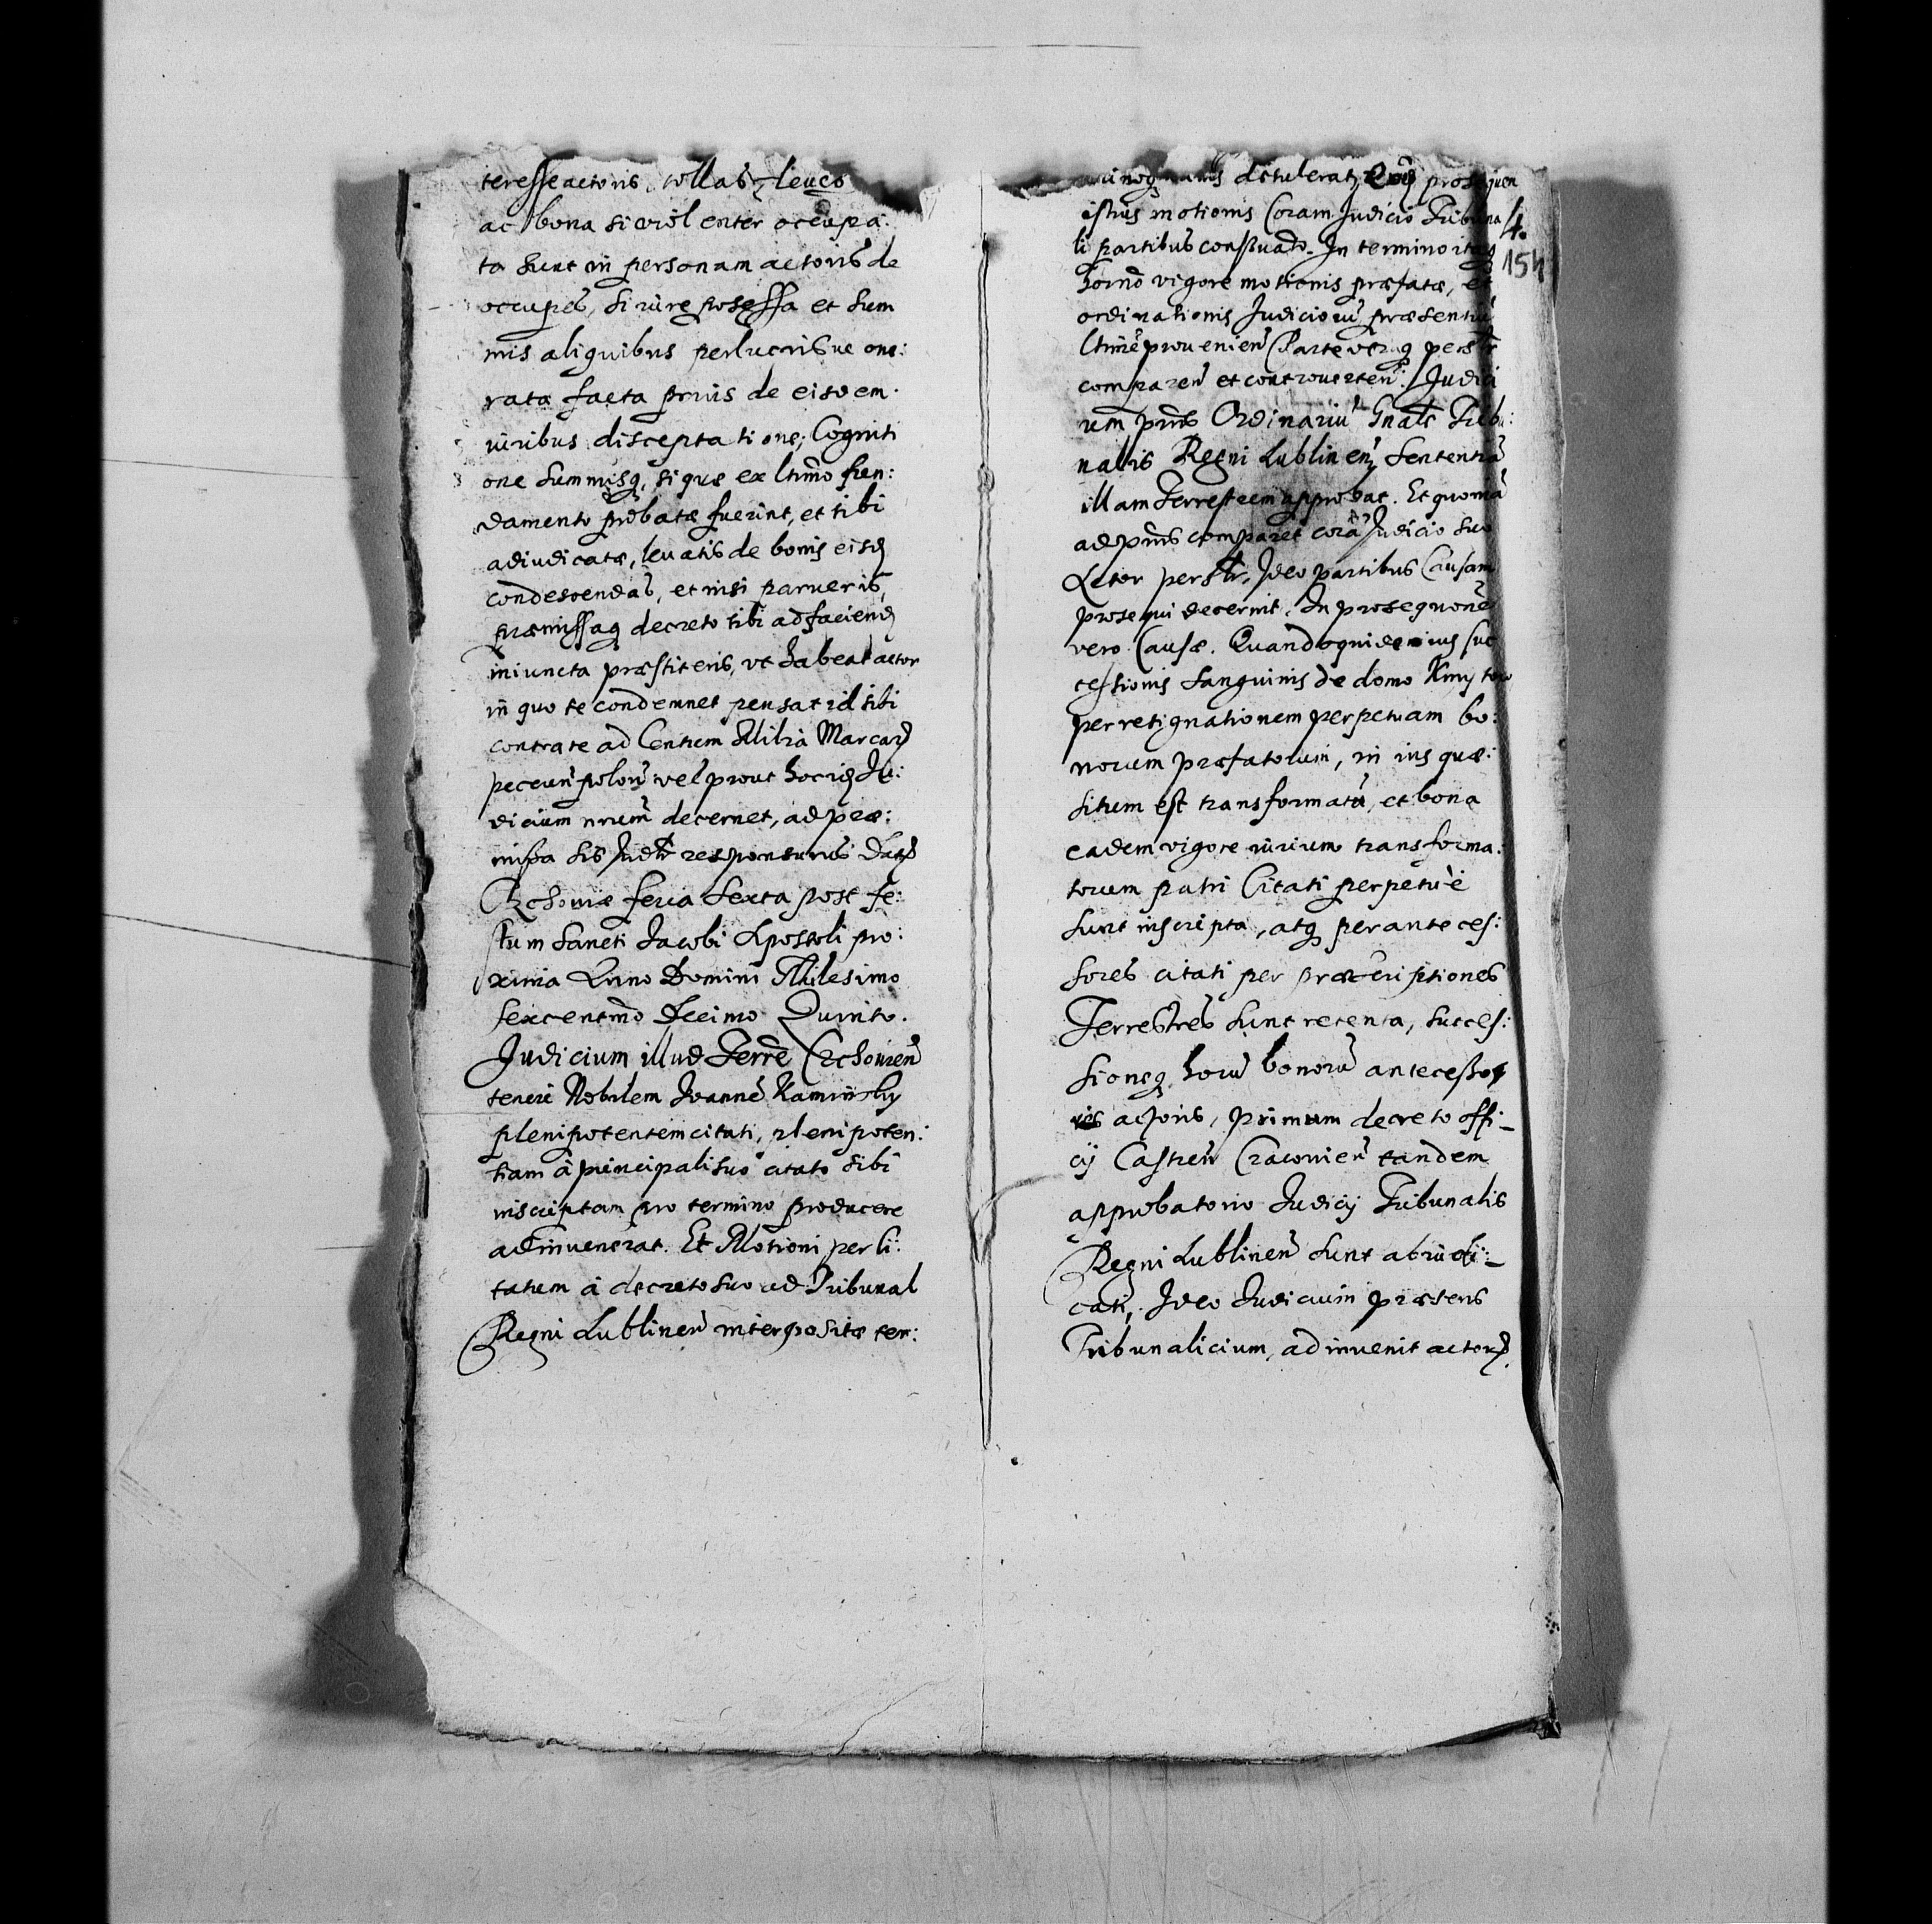 teresse actoris, tollas, leues
ac bona si violenter occupa:
ta sunt in personam actoris de
occupes, si iure possessa et sum
mis aliquibus perlucrisue one:
rata facta prius de eisdem
iuribus disceptatione, Cogniti
one summisq, si quæ ex ltimo fun:
damento probatæ fuerint, et tibi
adiudicatæ, leuatis de bonis eisd
condescendas, et nisi parueris,
præmissaq decreto tibi ad faciend
iniuncta præstiteris, vt habeat actor
in quo te condemnet pensat id sibi
contra te ad Centum Milia Marcar
pecun polon vel prout hoc id Iu:
dicium nrum decernet, ad præ:
missa sis Judr responsurus Dat
Czchouiæ feria Sexta post fe:
stum Sancti Jacobi Apostoli pro:
xima Anno Domini Millesimo
sexcentmo Decimo Quinto.
Judicium illud Terre Czchouien
teneri Nobilem Joanne Kaminsky
plenipotentem citati, plenipoten:
tiam à principali suo citato sibi
inscriptam pro termino producere
adinuenerat. Et Motioni per ci:
tatum à decreto suo ad Tribunal
Regni Lublinen interpositæ ter:
detulerat, prosequen
istius motionis Coram Judicio Tribuna 4.
li partibus conseruato. In termino itaq 154
horno vigore motionis præfatæ, et
ordinationis Judiciorū præsentiū
ltime prouenien Parte vtraq persr
comparen et controuerten: Judici
um pns Ordinariū Gnale Tribu:
nalis Regni Lublinen Sententiā
illam Terrestrem approbat. Et quoniā
ad pns comparet corā Judicio suo
Actor persr, Ideo partibus Causam
prosequi decernit. In prosequone
vero Causæ. Quandoquidem ius suc
cessionis Sanguinis de domo Kmytow
per resignationem perpetuam bo:
norum præfatorum, in ius quæ:
situm est transformatū, et bona
eadem vigore iurium transforma:
torum patri Citati perpetuè
sunt inscripta, atq per anteces:
sores citati per præscriptiones
Terrestres sunt retenta, succes:
sioneq horū bonorū antecesso
res actoris, primum decreto offi-
cij Castren Cracouien tandem
approbatorio Judicij Tribunalis
Regni Lublinen sunt abiudi:-
cati, Ideo Judicium præsens
Tribunalicium, adinuenit actore